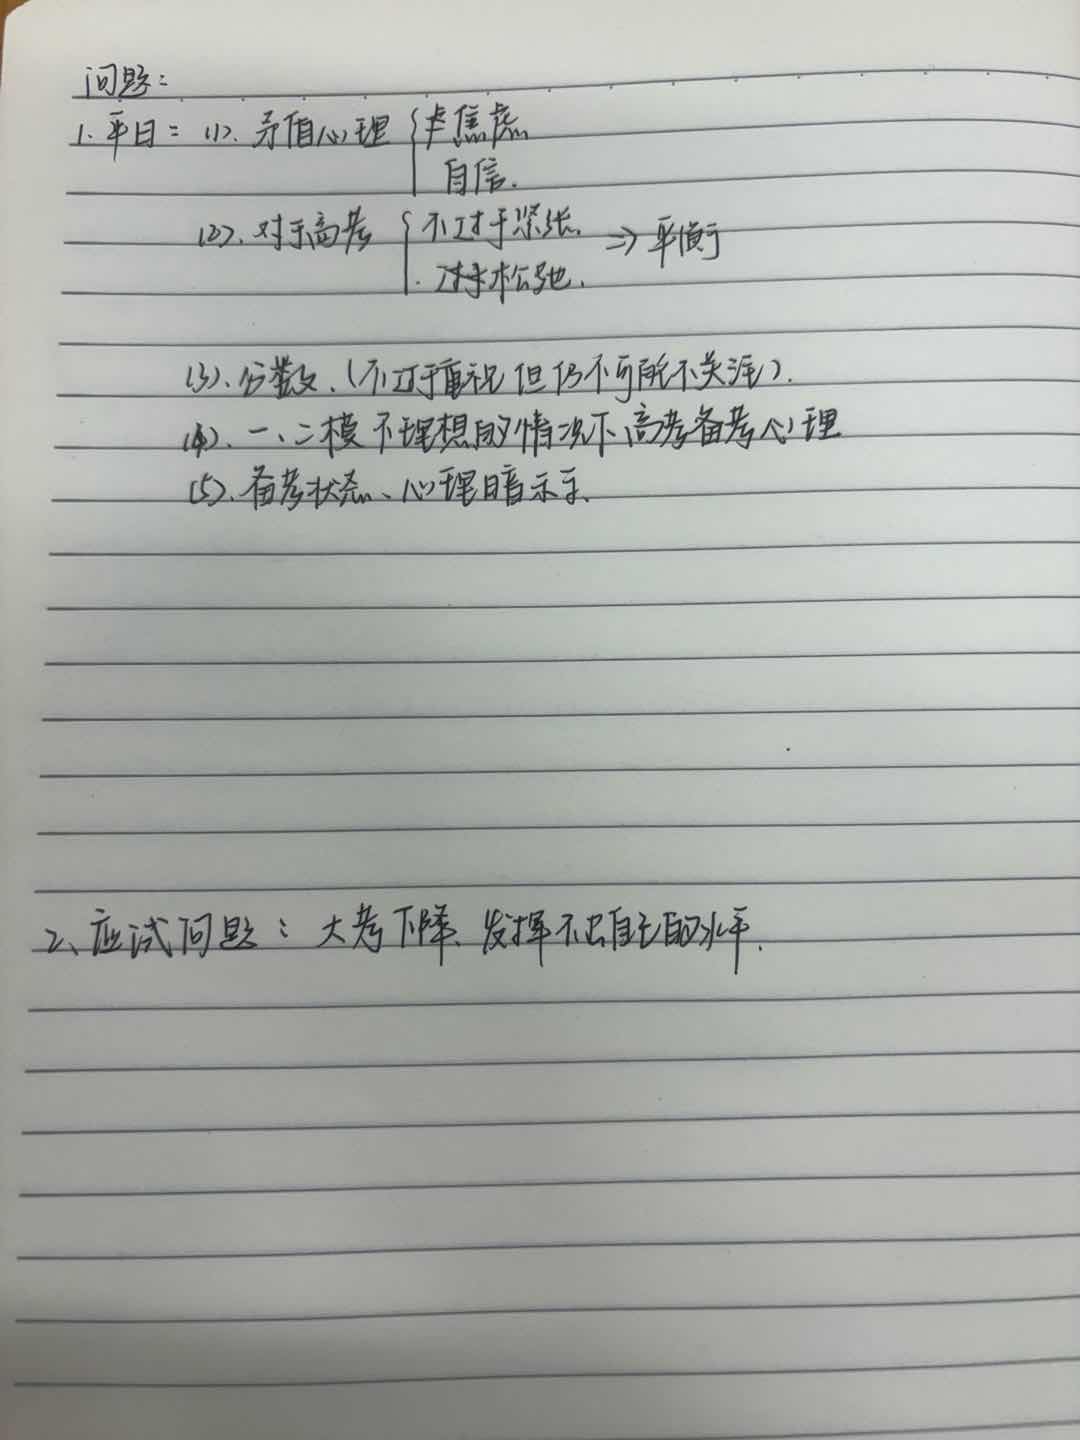 问题：
1. 平日：(1). 矛盾心理 { 焦虑
自信.
(2). 对于高考 { 不过于紧张. ⇒ 平衡
. 过于松弛.
(3). 分数. (不过于重视但仍不可能不关注).
(4). 一、二模不理想的情况下高考备考心理
(5). 备考状态、心理暗示.
2、应试问题：大考下降、发挥不出自己的水平.